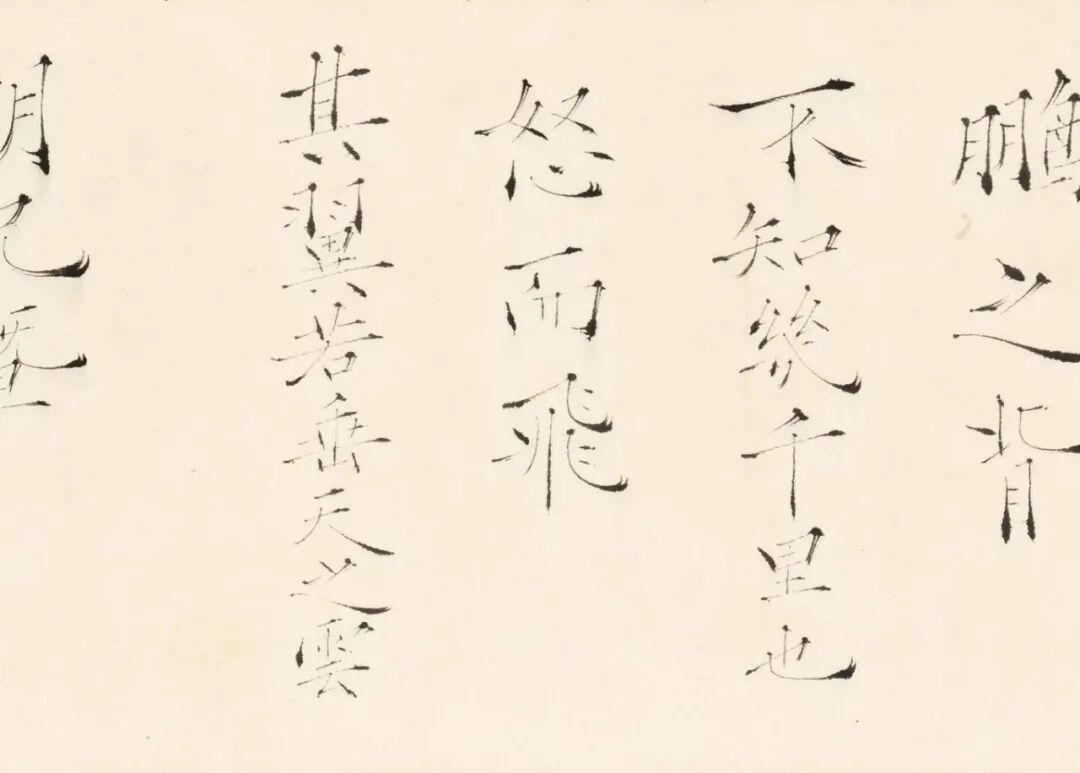 鵬之背
不知幾千里也
怒而飛
其翼若垂天之雲